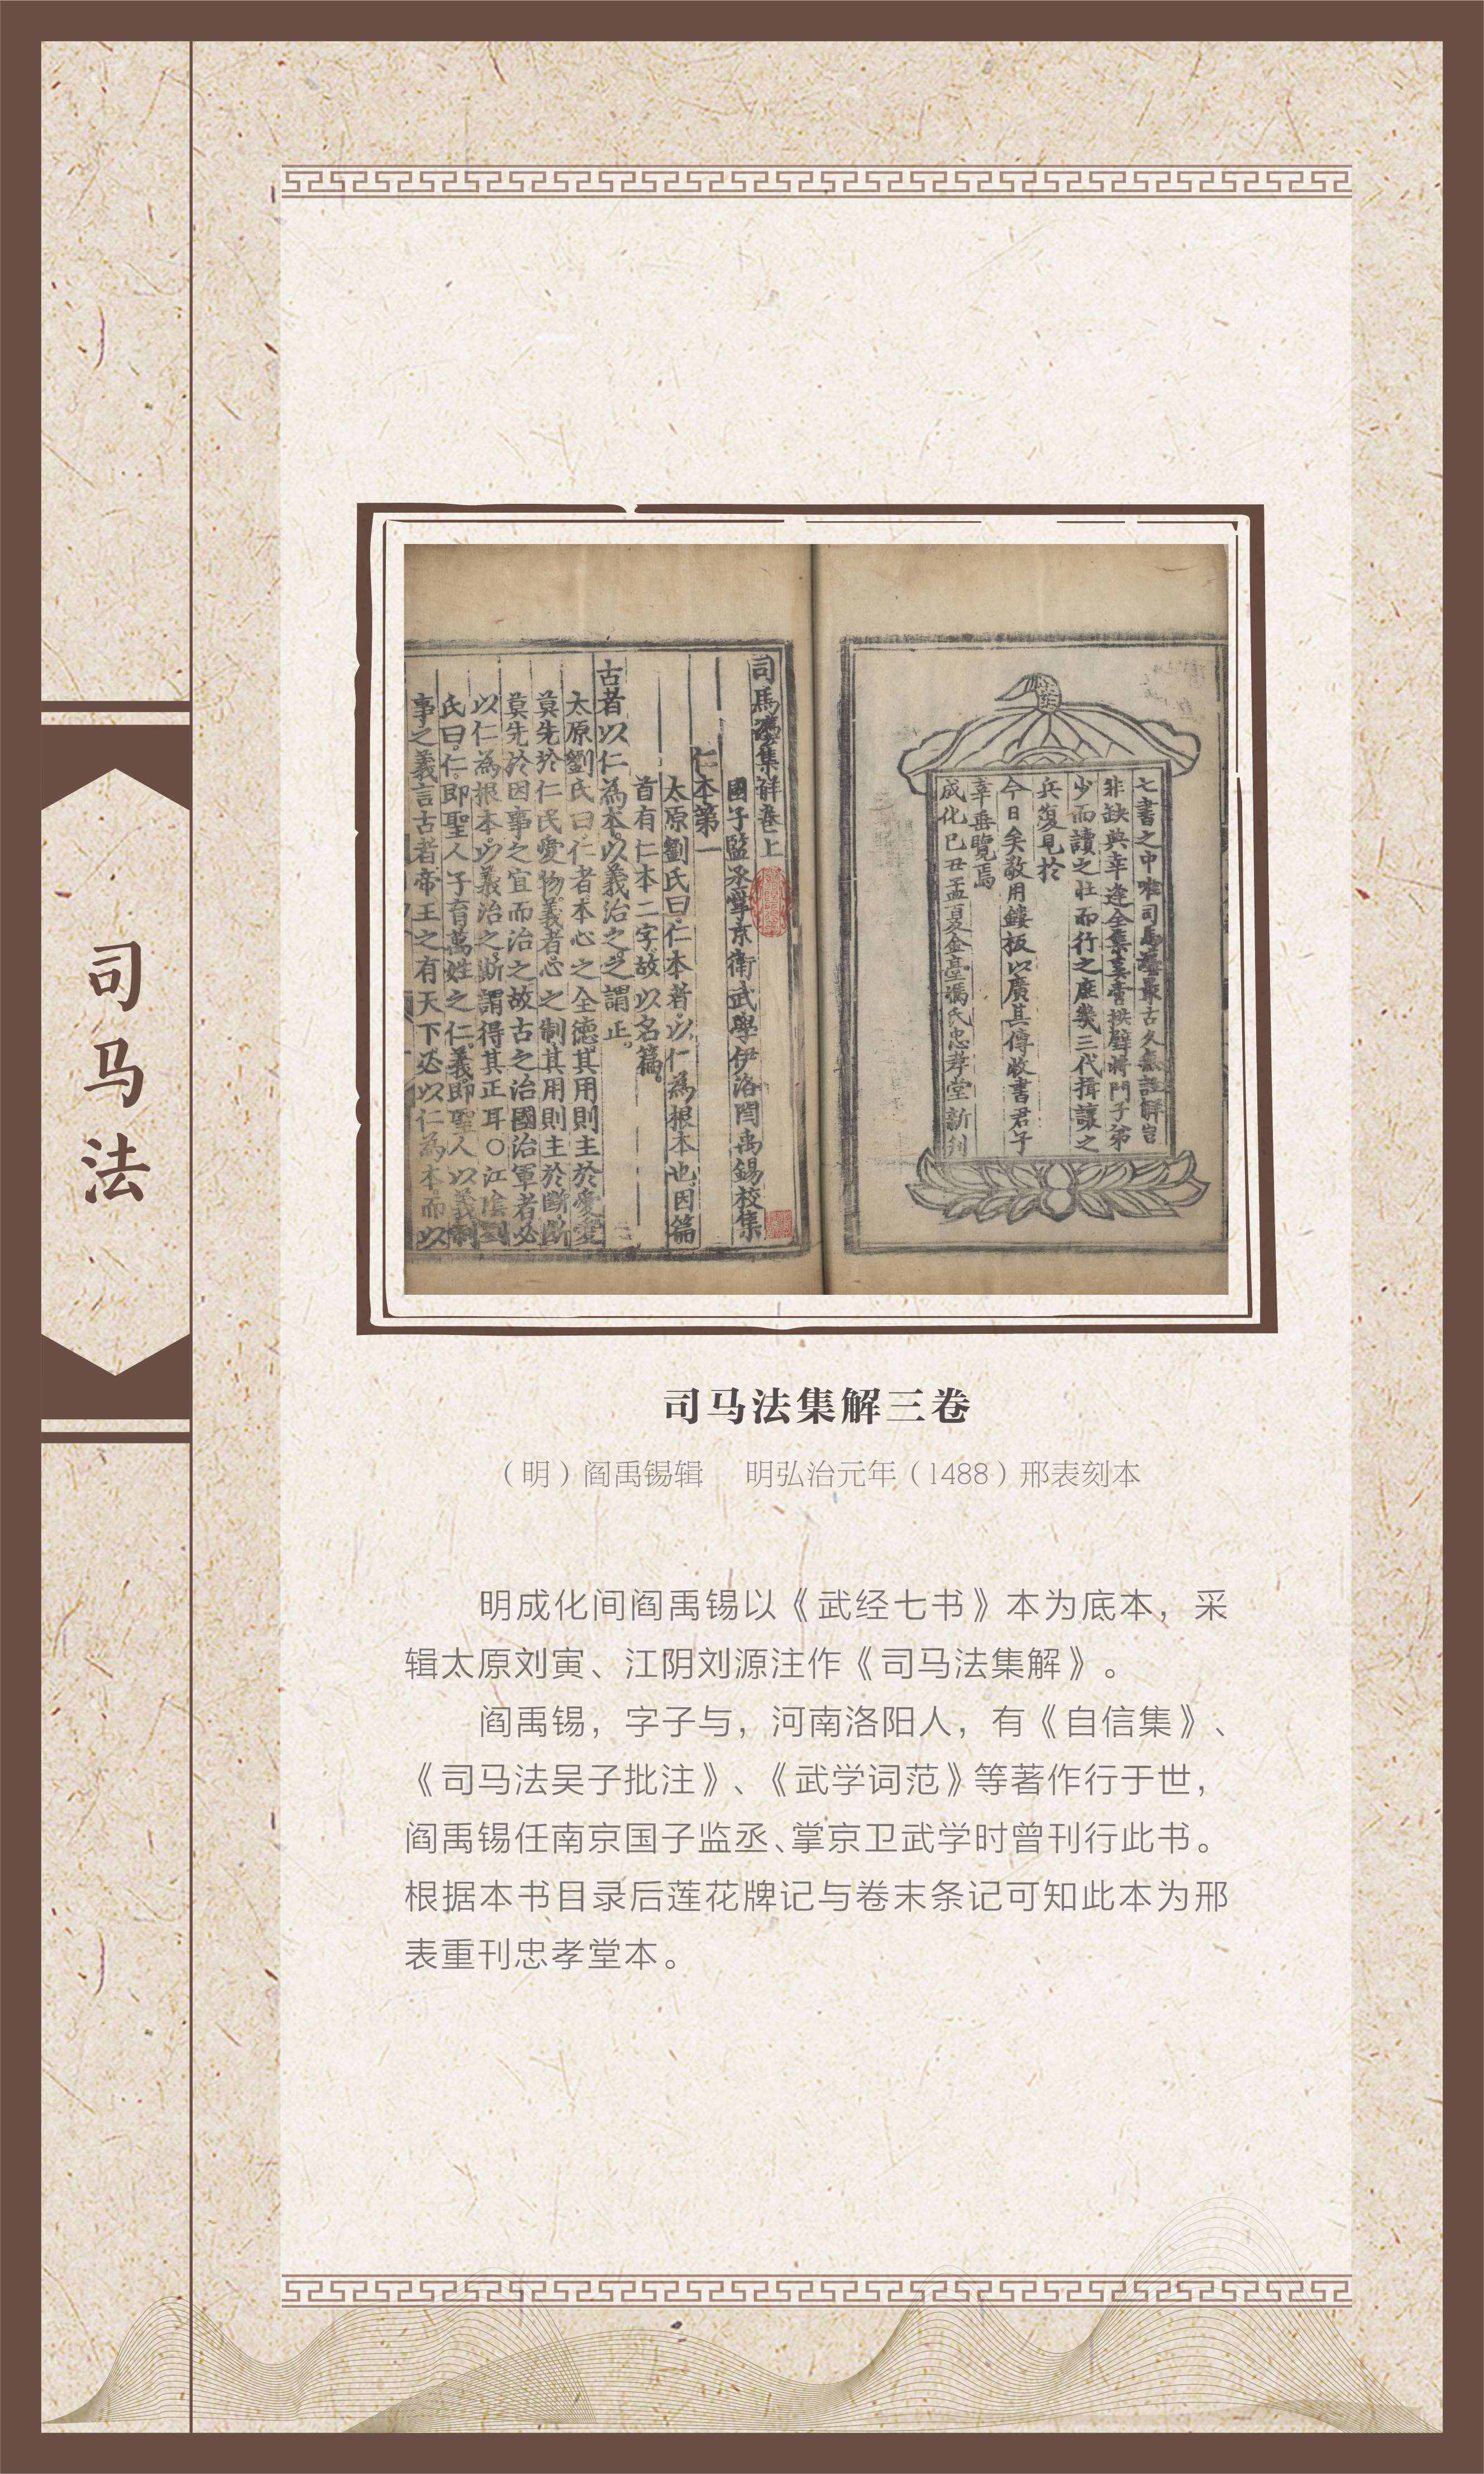 司马法
七書之中唯司馬灋最古久無註解豈
非缺典幸逢全集莫啻拱璧將門子弟
少而讀之壯而行之庶幾三代揖讓之
兵復見於
今日矣敬用鏤板以廣其傳收書君子
幸垂覽焉
成化己丑孟夏金臺馮氏忠孝堂新刊
司馬灋集解卷上
國子監丞掌京衛武學伊洛閆禹錫校集
仁本第一
太原劉氏曰仁本者以仁為根本也因篇
首有仁本二字故以名篇
古者以仁為本以義治之之謂正
太原劉氏曰仁者本心之全德其用則主於愛愛
莫先於仁民愛物義者心之制其用則主於斷斷
莫先於因事之宜而治之故古之治國治軍者必
以仁為根本以義治之斯謂得其正耳○江陰劉
氏曰仁即聖人子育萬姓之仁義即聖人以義制
事之義言古者帝王之有天下必以仁為本而以
司马法集解三卷
（明）阎禹锡辑 明弘治元年（1488）邢表刻本
明成化间阎禹锡以《武经七书》本为底本，采
辑太原刘寅、江阴刘源注作《司马法集解》。
阎禹锡，字子与，河南洛阳人，有《自信集》、
《司马法吴子批注》、《武学词范》等著作行于世，
阎禹锡任南京国子监丞、掌京卫武学时曾刊行此书。
根据本书目录后莲花牌记与卷末条记可知此本为邢
表重刊忠孝堂本。